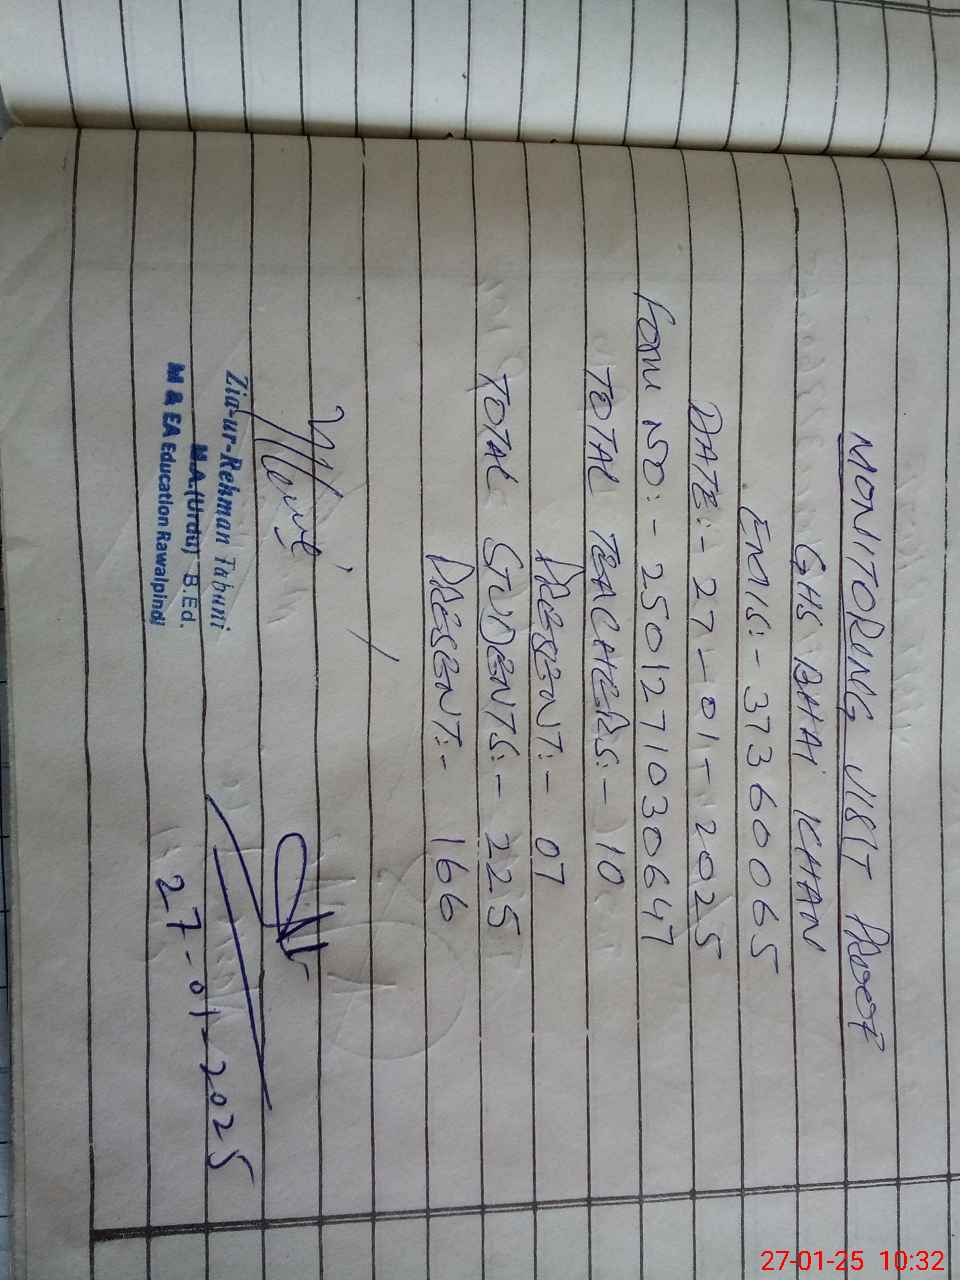 MONITORING VIST PROOF
GHS BHAI KHAN
EMIS:- 37360065
DATE:- 27-01-2025
FORM NO:- 2501271030647
TOTAL TEACHERS:- 10
PRESENT:- 07
TOTAL STUDENTS:- 225
PRESENT:- 166
Zia-ur-Rehman Tabani
M.A.(Urdu) B.Ed.
M & EA Education Rawalpindi
27-01-2025
27-01-25 10:32